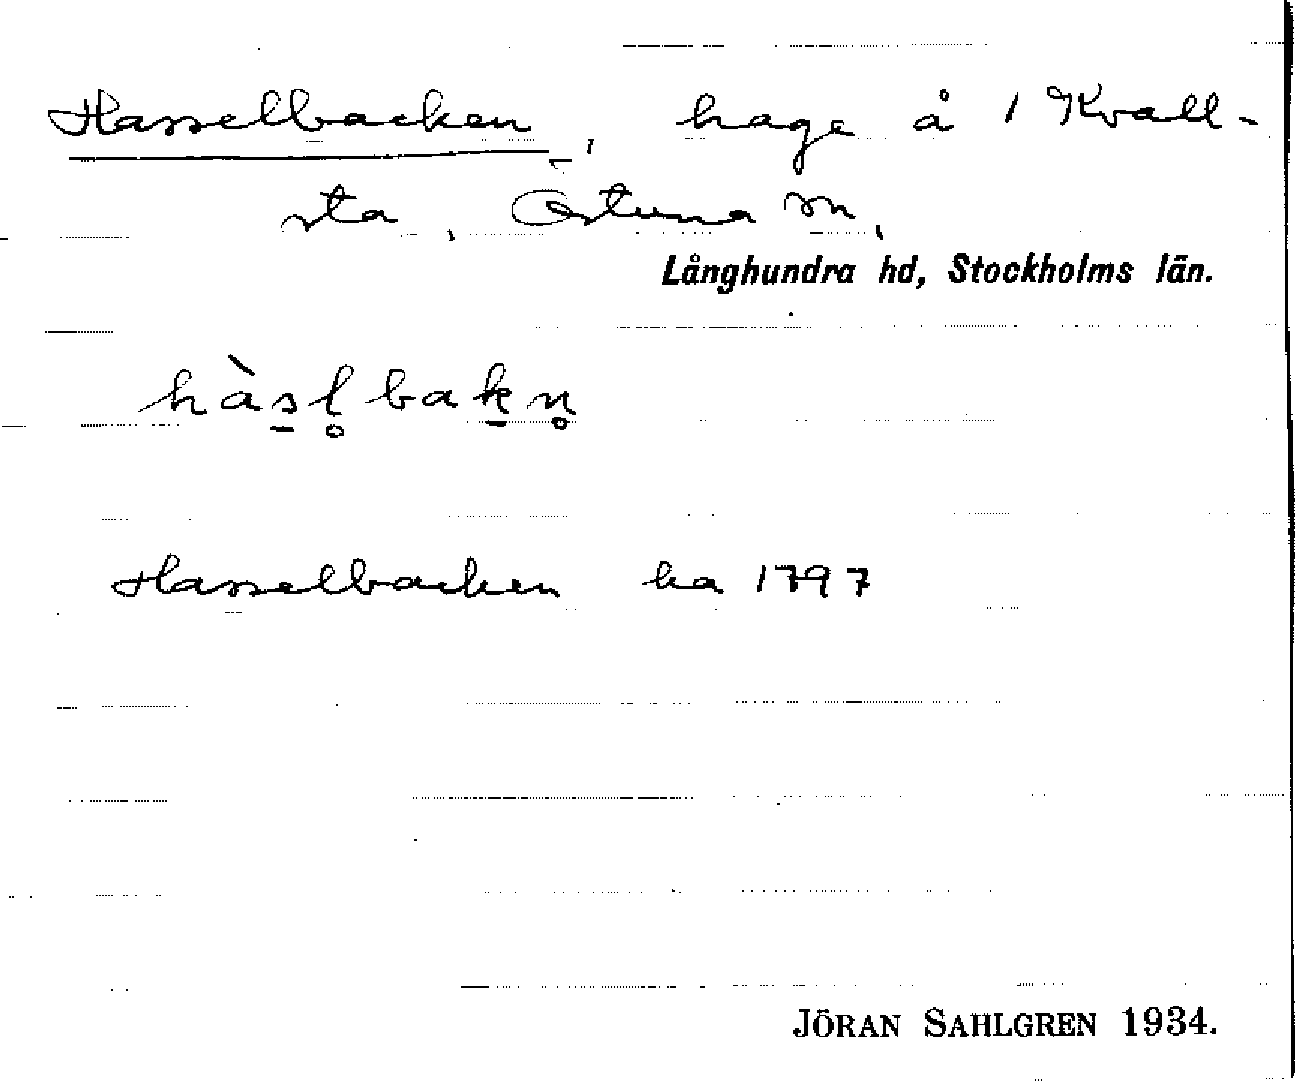 Hasselbacken, hage å 1 Kvall-
sta, Östuna sn,
Långhundra hd, Stockholms län.
hàs̠l̥bak̠n̥
Hasselbacken ha 1797
JÖRAN SAHLGREN 1934.